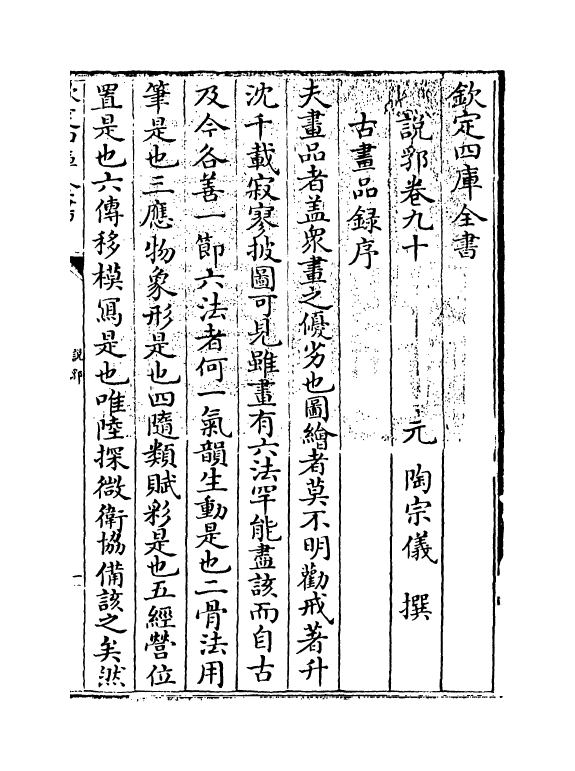 欽定四庫全書
說郛卷九十
元 陶宗儀 撰
古畫品録序
夫畫品者盖衆畫之優劣也圖繪者莫不明勸戒著升
沈千載寂寥披圖可見雖畫有六法罕能盡該而自古
及今各善一節六法者何一氣韻生動是也二骨法用
筆是也三應物象形是也四隨類賦彩是也五經營位
置是也六傳移模寫是也唯陸探微衛協備該之矣然
說郛
一